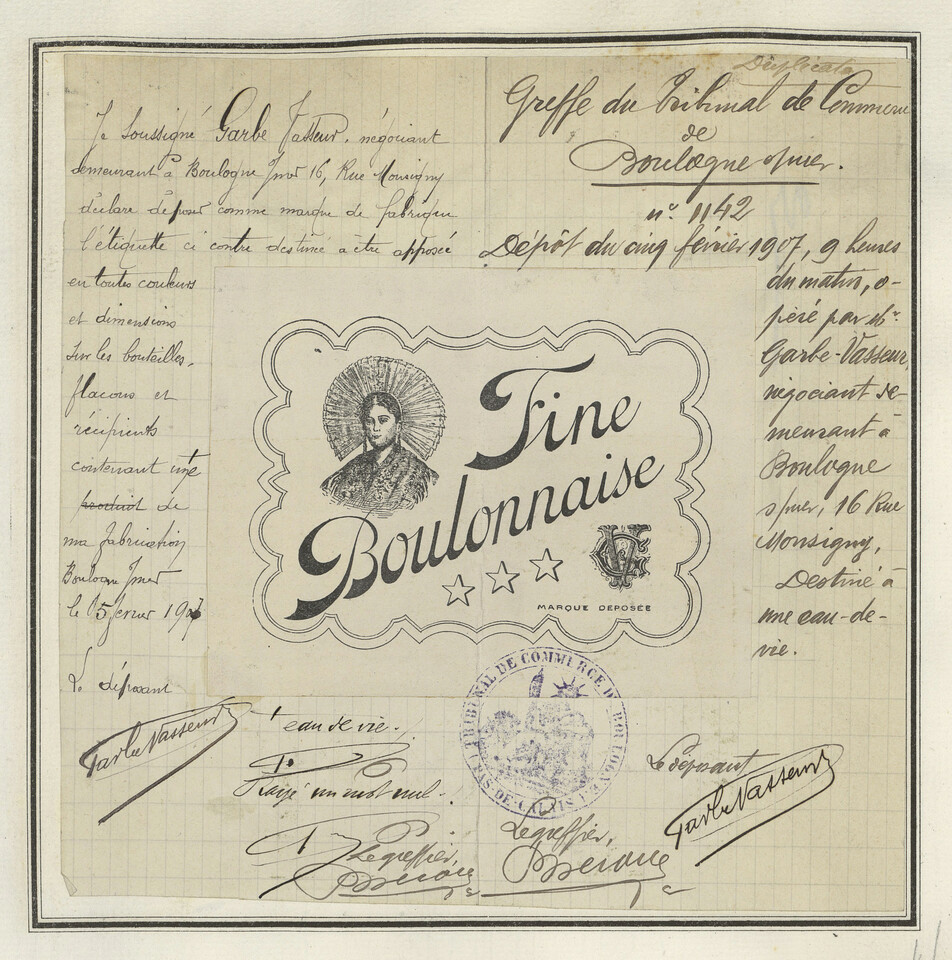 Duplicata
Je Soussigné Garbe Vasseur, négociant
demeurant à Boulogne s/mer 16, Rue Monsigny
déclare déposer comme marque de fabrique
l'étiquette ci contre destiné a être apposée
en toutes couleurs
et dimensions
sur les bouteilles,
flacons et
récipients
contenant une
produit de
ma fabrication
Boulogne s/mer
le 5 février 1907
Le déposant
Garbe Vasseur
eau de vie.
Rayé un mot nul.
Le greffier,
Greffe du Tribunal de Commerce
de
Boulogne s/mer.
n° 1142
Dépôt du cinq février 1907, 9 heures
du matin, o-
péré par Mr
Garbe-Vasseur,
négociant de-
meurant à
Boulogne
s/mer, 16 Rue
Monsigny,
Destiné à
une eau-de-
vie.
Le déposant
Garbe Vasseur
Le greffier,
Fine
Boulonnaise
MARQUE DÉPOSÉE
TRIBUNAL DE COMMERCE DE BOULOGNE
PAS-DE-CALAIS